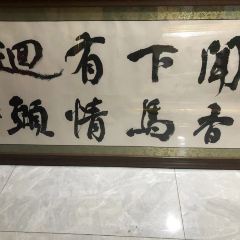 聞香
下馬
有情
迴頭